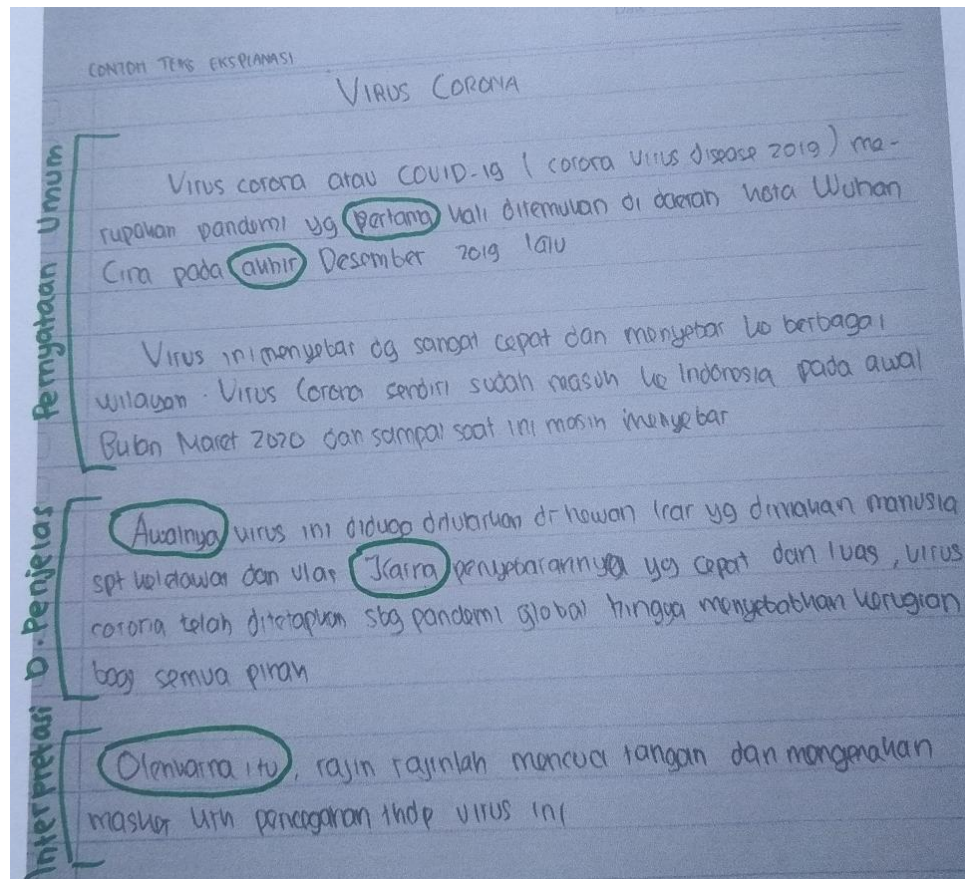 CONTOH TEKS EKSPLANASI
VIRUS CORONA
Pernyataan Umum
Virus corona atau COVID-19 (corona virus disease 2019) me-
rupakan pandemi yg pertama kali ditemukan di daerah kota Wuhan
Cina pada akhir Desember 2019 lalu
Virus ini menyebar dg sangat cepat dan menyebar ke berbagai
wilayah. Virus Corona sendiri sudah masuk ke Indonesia pada awal
Bulan Maret 2020 dan sampai saat ini masih menyebar
D. Penjelas
Awalnya virus ini diduga ditularkan dr hewan liar yg dimakan manusia
spt kelelawar dan ular Karna penyebarannya yg cepat dan luas, virus
corona telah ditetapkan sbg pandemi global hingga menyebabkan kerugian
bagi semua pihak
Interpretasi
Olehkarna itu, rajin rajinlah mencuci tangan dan mengenakan
masker utk pencegahan thdp virus ini